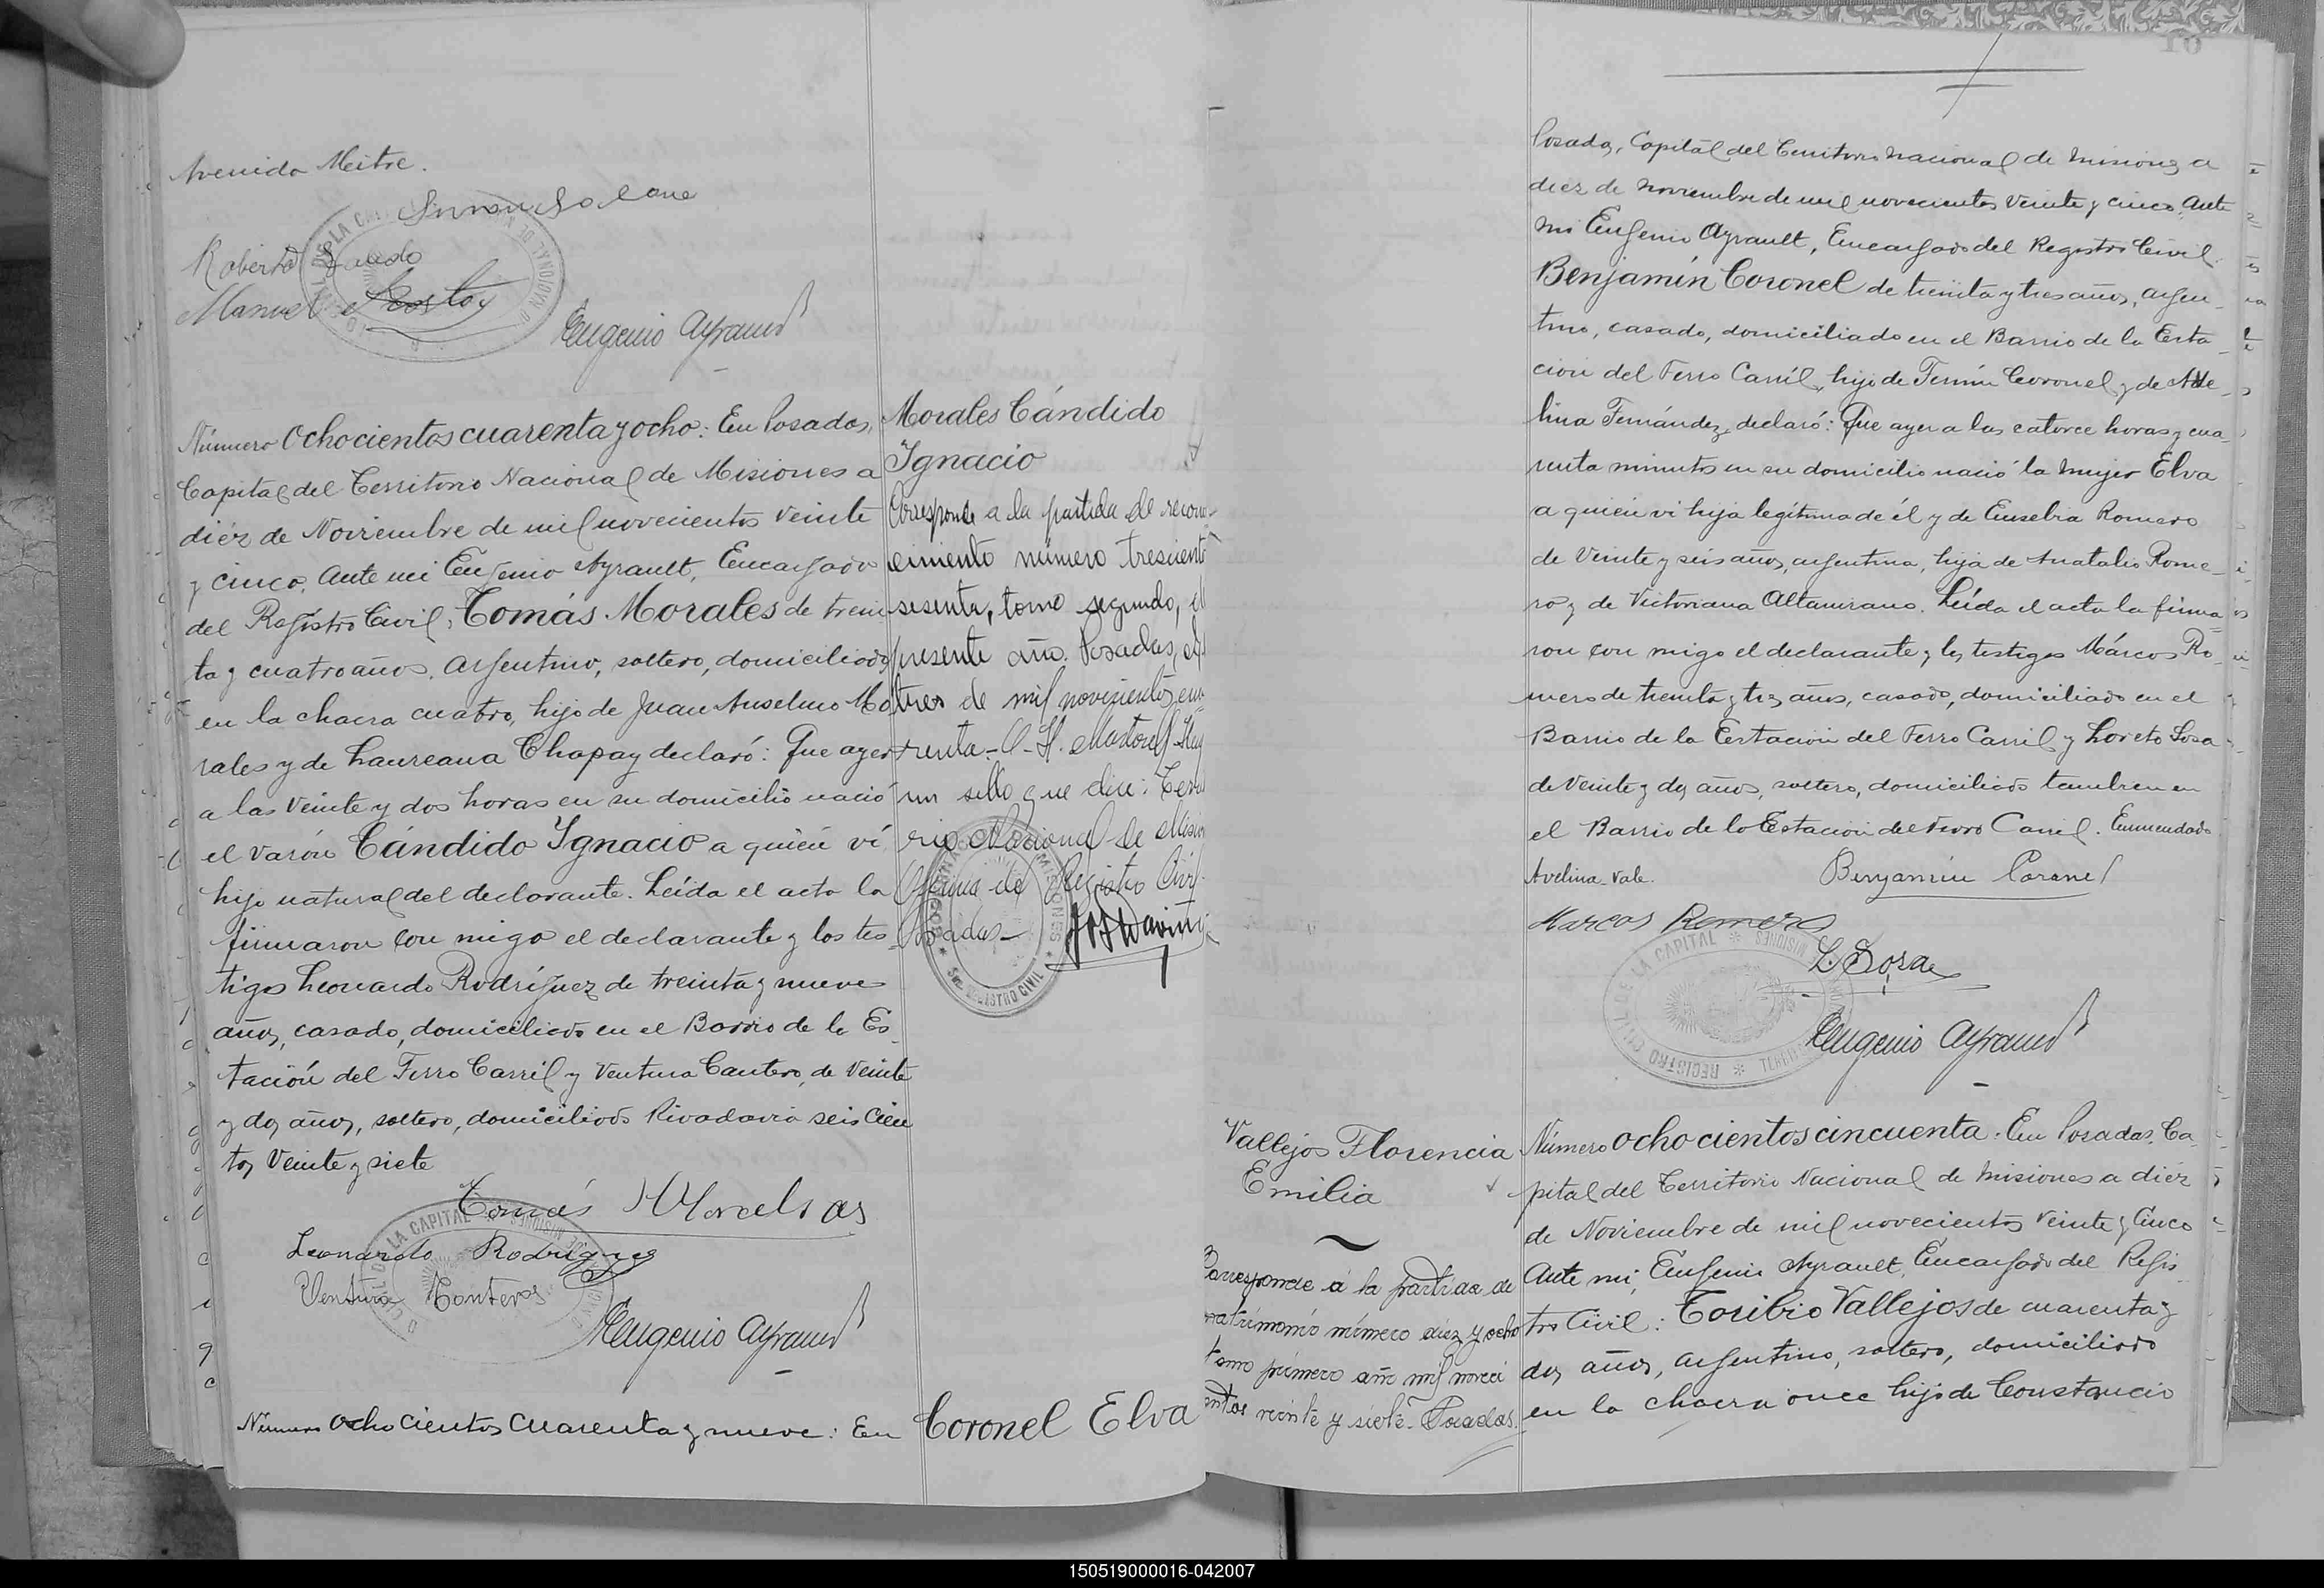 Avenida Mitre.
Roberto
Manuel
Eugenio Ayrault
Número Ochocientos cuarenta y ocho: En Posadas,
Capital del Territorio Nacional de Misiones a
diéz de Noviembre de mil novecientos veinte
y cinco, Ante mi Eugenio Ayrault, Encargado
del Registro Civil, Tomás Morales de trein
ta y cuatro años, argentino, soltero, domiciliado
en la chacra cuatro, hijo de Juan Anselmo Mo
rales y de Laureana Chapay declaró: Que ayer
a las veinte y dos horas en su domicilio nació
el varón Cándido Ignacio a quién ví
hijo natural del declarante. Leída el acta la
firmaron con migo el declarante y los tes
tigos Leonardo Rodríguez de treinta y nueve
años, casado, domiciliado en el Barrio de la Es-
tación del Ferro Carril y Ventura Cantero, de veinte
y dos años, soltero, domiciliado Rivadavia seis cien
tos veinte y siete
Tomás Morales
Leonardo Rodriguez
Ventura Canteros
Eugenio Ayrault
Número Ochocientos cuarenta y nueve: En
Morales Cándido
Ignacio
Corresponde a la partida de recono-
cimiento número trescient
sesenta, tomo segundo,
presente año. Posadas,
tres de mil novecientos cua
renta.- Hay
un sello que dice: Terri
rio Nacional de Mision
Oficina del Registro Civil
Posadas-
Coronel Elva
Posadas, Capital del Territorio Nacional de Misiones a
diez de Noviembre de mil novecientos veinte y cinco, Ante
mi Eugenio Ayrault, Encargado del Registro Civil.
Benjamín Coronel de treinta y tres años, argen-
tino, casado, domiciliado en el Barrio de la Esta-
ción del Ferro Carril, hijo de Fermín Coronel y de Ave-
lina Fernández, declaró: Que ayer a las catorce horas y cua-
renta minutos en su domicilio nació la mujer Elva
a quién vi hija legítima de él y de Eusebia Romero
de veinte y seis años, argentina, hija de Anatalio Rome-
ro y de Victoriana Altamirano. Leída el acta la firma-
ron con migo el declarante y los testigos Márcos Ro-
mero de treinta y tres años, casado, domiciliado en el
Barrio de la Estación del Ferro Carril y Loreto Sosa
de veinte y dos años, soltero, domiciliado tambien en
el Barrio de la Estación del Ferro Carril. Enmendado
Avelina-Vale.
Benjamin Coronel
Marcos Romero
L. Sosa
REGISTRO CIVIL DE LA CAPITAL
Eugenio Ayrault
Vallejos Florencia
Emilia
Corresponde á la partida de
matrimonio número diez y ocho
tomo primero año mil noveci
entos veinte y siete.- Posadas.
Número Ochocientos cincuenta. En Posadas, Ca-
pital del Territorio Nacional de Misiones a diéz
de Noviembre de mil novecientos veinte y cinco
Ante mi, Eugenio Ayrault, Encargado del Regis
tro Civil: Toribio Vallejos de cuarenta y
dos años, argentino, soltero, domiciliado
en la chacra once hijo de Constancio
150519000016-042007